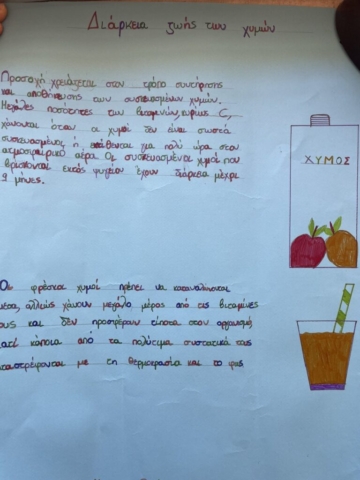 Διάρκεια ζωής των χυμών
Προσοχή χρειάζεται στον τρόπο συντήρησης
και αποθήκευσης των συσκευασμένων χυμών.
Μεγάλες ποσότητες των βιταμινών, κυρίως C,
χάνονται όταν οι χυμοί δεν είναι σωστά
συσκευασμένοι, ή εκτίθενται για πολύ ώρα στον
ατμοσφαιρικό αέρα. Οι συσκευασμένοι χυμοί που
βρίσκονται εκτός ψυγείου έχουν διάρκεια μέχρι
9 μήνες.
ΧΥΜΟΣ
Οι φρέσκοι χυμοί πρέπει να καταναλώνονται
μέσα, αλλιώς χάνουν μεγάλο μέρος από τις βιταμίνες
τους και δεν προσφέρουν τίποτα στον οργανισμό,
γιατί κάποια από τα πολύτιμα συστατικά τους
καταστρέφονται με τη θερμοκρασία και το φως